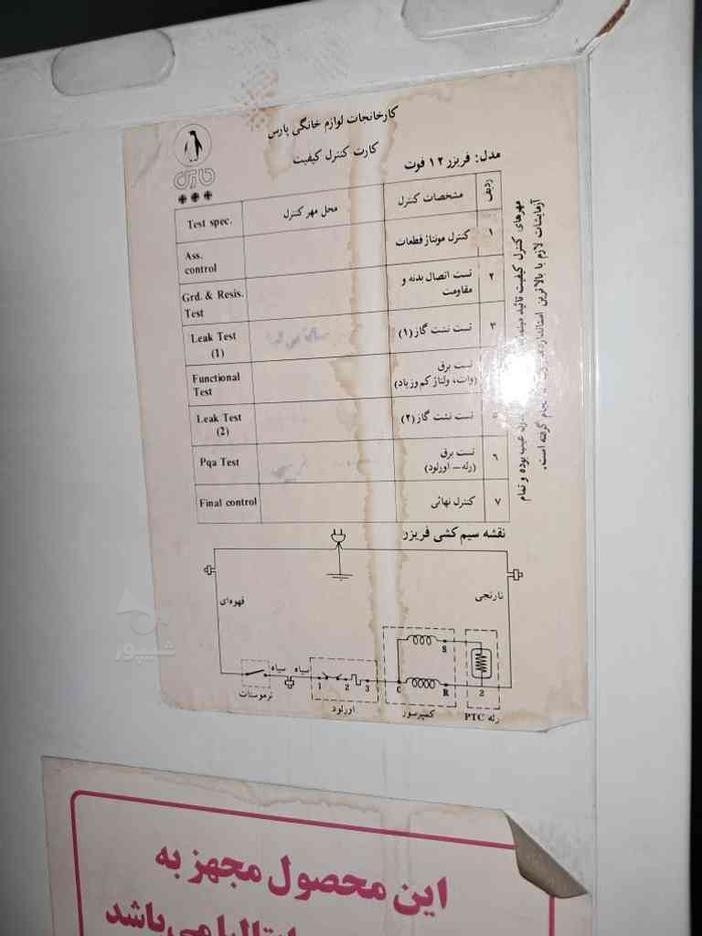 کارخانجات لوازم خانگی پارس
کارت کنترل کیفیت
مدل: فریزر ۱۲ فوت
ردیف مشخصات کنترل محل مهر کنترل Test spec.
۱ کنترل مونتاژ قطعات Ass. control
۲ تست اتصال بدنه و مقاومت Grd. & Resis. Test
۳ تست نشت گاز (۱) Leak Test (1)
تست برق (وات، ولتاژ کم وزیاد) Functional Test
تست نشت گاز (۲) Leak Test (2)
تست برق (رله – اورلود) Pqa Test
۷ کنترل نهائی Final control
مهرهای کنترل کیفیت تائید عیب بوده و تمام
آزمایشات لازم با بالاترین گرفته است.
نقشه سیم کشی فریزر
قهوه‌ای
نارنجی
سیاه سیاه
S
1 2 3 C R 2
ترموستات اورلود کمپرسور رله PTC
شیپور
این محصول مجهز به
ایتالیا می‌باشد